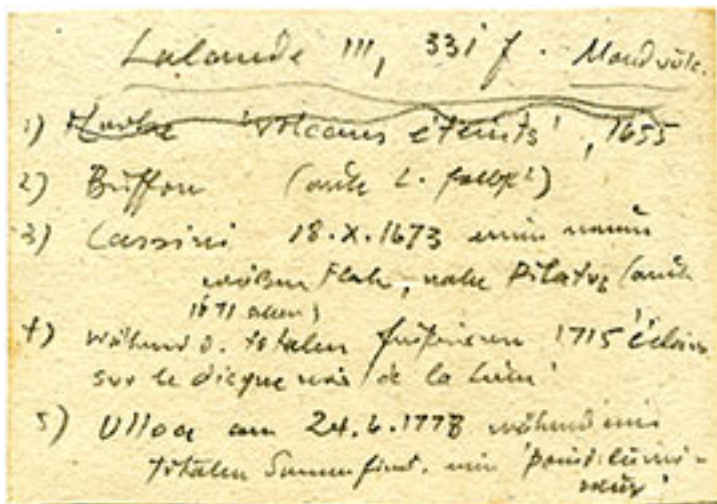 Lalande III, 331 f. Mondvulk.
1) 'Volcans éteints', 1655
2) Buffon (auch L. selbst)
3) Cassini 18.X.1673 einen neuen
weißen Fleck, nahe Pitatus (auch
1671 
4) während d. totalen Finsternis 1715 'éclairs
sur le disque noir de la lune'
5) Ulloa am 24.6.1778 während einer
totalen Sonnenfinst. ein 'point lumi-
neux'